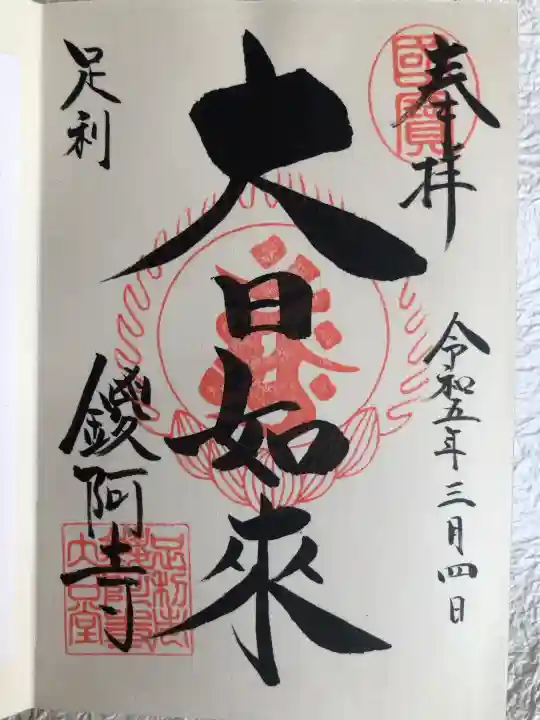 奉拝
國寶
令和五年三月四日
大日如來
足利
鑁阿寺